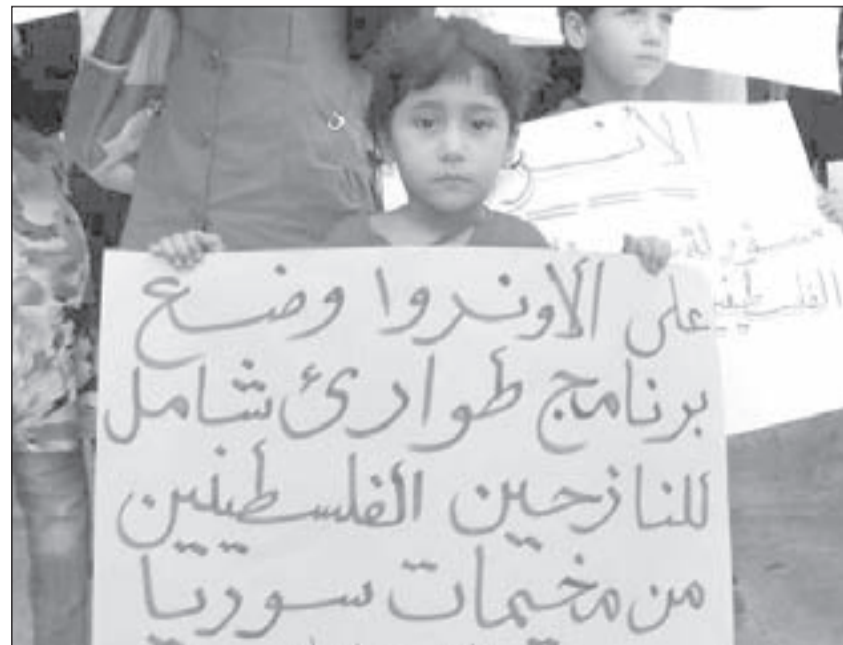 على الاونروا وضع
برنامج طوارئ شامل
للنازحين الفلسطينين
من مخيمات سوريا
الفلسطينيين